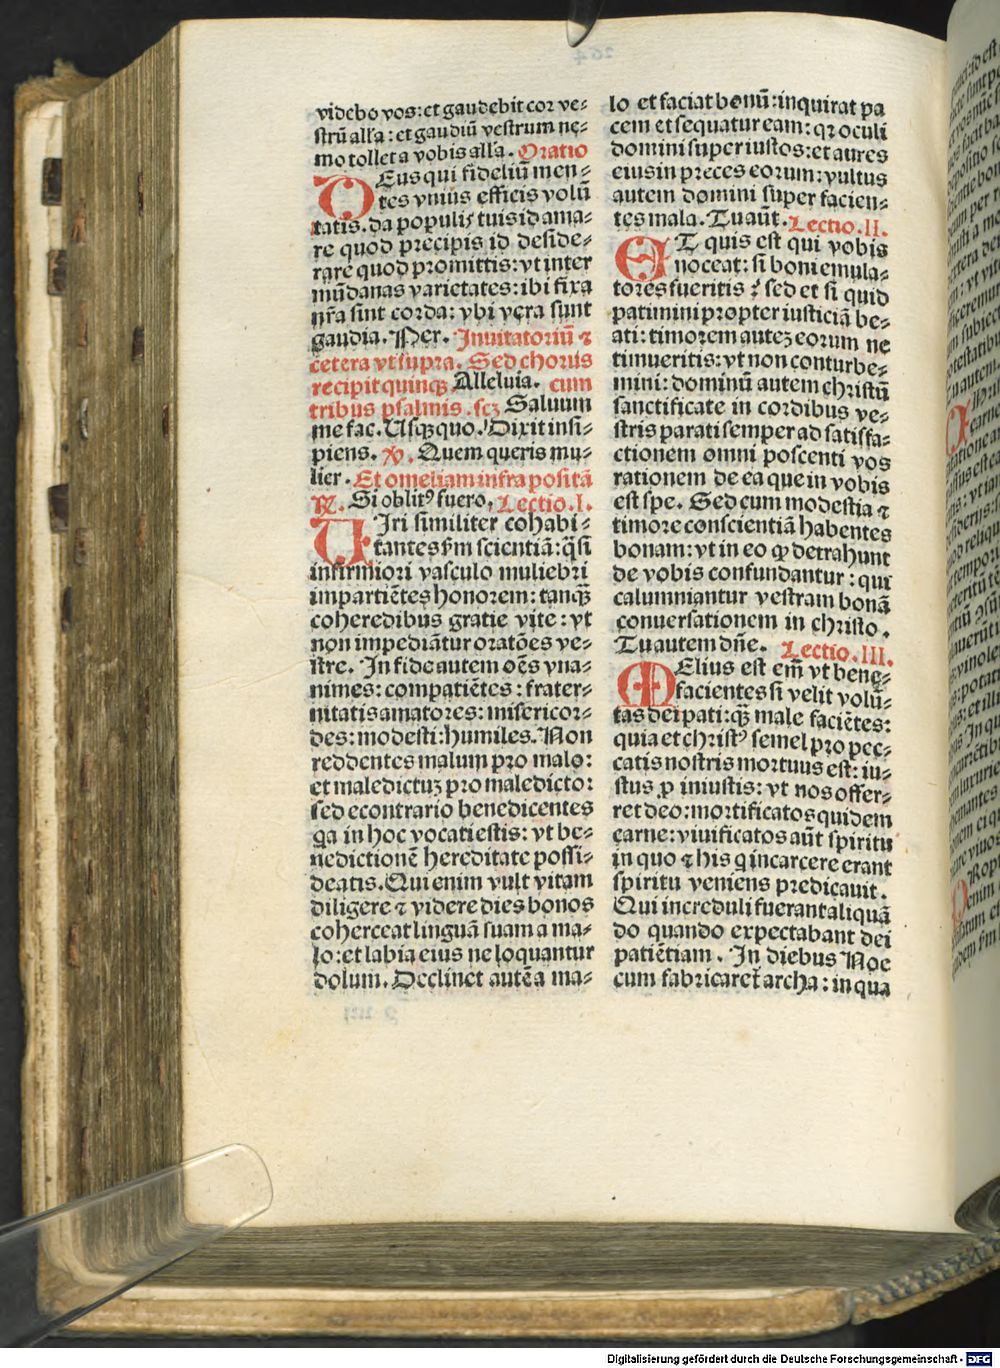 videbo vos: et gaudebit cor ve⸗
strū alľa: et gaudiū vestrum ne⸗
mo tollet a vobis alľa. Oratio
Deus qui fideliū men⸗
tes vnius efficis volū
tatis. da populis tuis id ama⸗
re quod precipis id deside⸗
rare quod promittis: vt inter
mūdanas varietates: ibi fixa
nr̄a sint corda: vbi vera sunt
gaudia. Per. Inuitatoriū ⁊
cetera vt supra. Sed chorus
recipit quinqꝫ Alleluia. cum
tribus psalmis .scꝫ Saluum
me fac. Usqꝫquo. Dixit insi⸗
piens. ℣. Quem queris mu⸗
lier. Et omeliam infra positā
℟. Si oblitꝰ fuero. Lectio.I.
Uiri similiter cohabi⸗
tantes ẜm scientiā: q̄si
infirmiori vasculo muliebri
impartiētes honorem: tanqꝫ
coheredibus gratie vite: vt
non impediātur oratōes ve⸗
stre. In fide autem oēs vna⸗
nimes: compatiētes: frater⸗
nitatis amatores: misericor⸗
des: modesti: humiles. Non
reddentes malum pro malo:
et maledictuꝫ pro maledicto:
sed econtrario benedicentes
qa in hoc vocati estis: vt be⸗
nedictionē hereditate possi⸗
deatis. Qui enim vult vitam
diligere ⁊ videre dies bonos
coherceat linguā suam a ma⸗
lo: et labia eius ne loquantur
dolum. Declinet autē a ma⸗
lo et faciat bonū: inquirat pa
cem et sequatur eam: qꝛ oculi
domini super iustos: et aures
eius in preces eorum: vultus
autem domini super facien⸗
tes mala. Tu aūt. Lectio.II.
Et quis est qui vobis
noceat: si boni emula⸗
tores fueritis? sed et si quid
patimini propter iusticiā be⸗
ati: timorem auteꝫ eorum ne
timueritis: vt non conturbe⸗
mini: dominū autem christū
sanctificate in cordibus ve⸗
stris parati semper ad satisfa⸗
ctionem omni poscenti vos
rationem de ea que in vobis
est spe. Sed cum modestia ⁊
timore conscientiā habentes
bonam: vt in eo ꝙ detrahunt
de vobis confundantur: qui
calumniantur vestram bonā
conuersationem in christo.
Tu autem dn̄e. Lectio.III.
Melius est em̄ vt bene⸗
facientes si velit volū⸗
tas dei pati: qꝫ male faciētes:
quia et christꝰ semel pro pec⸗
catis nostris mortuus est: iu⸗
stus ꝓ iniustis: vt nos offer⸗
ret deo: mortificatos quidem
carne: viuificatos aūt spiritu
in quo ⁊ his q in carcere erant
spiritu veniens predicauit.
Qui increduli fuerant aliquā
do quando expectabant dei
patiētiam. In diebus Noe
cum fabricaret̄ archa: in qua
Digitalisierung gefördert durch die Deutsche Forschungsgemeinschaft - DFG